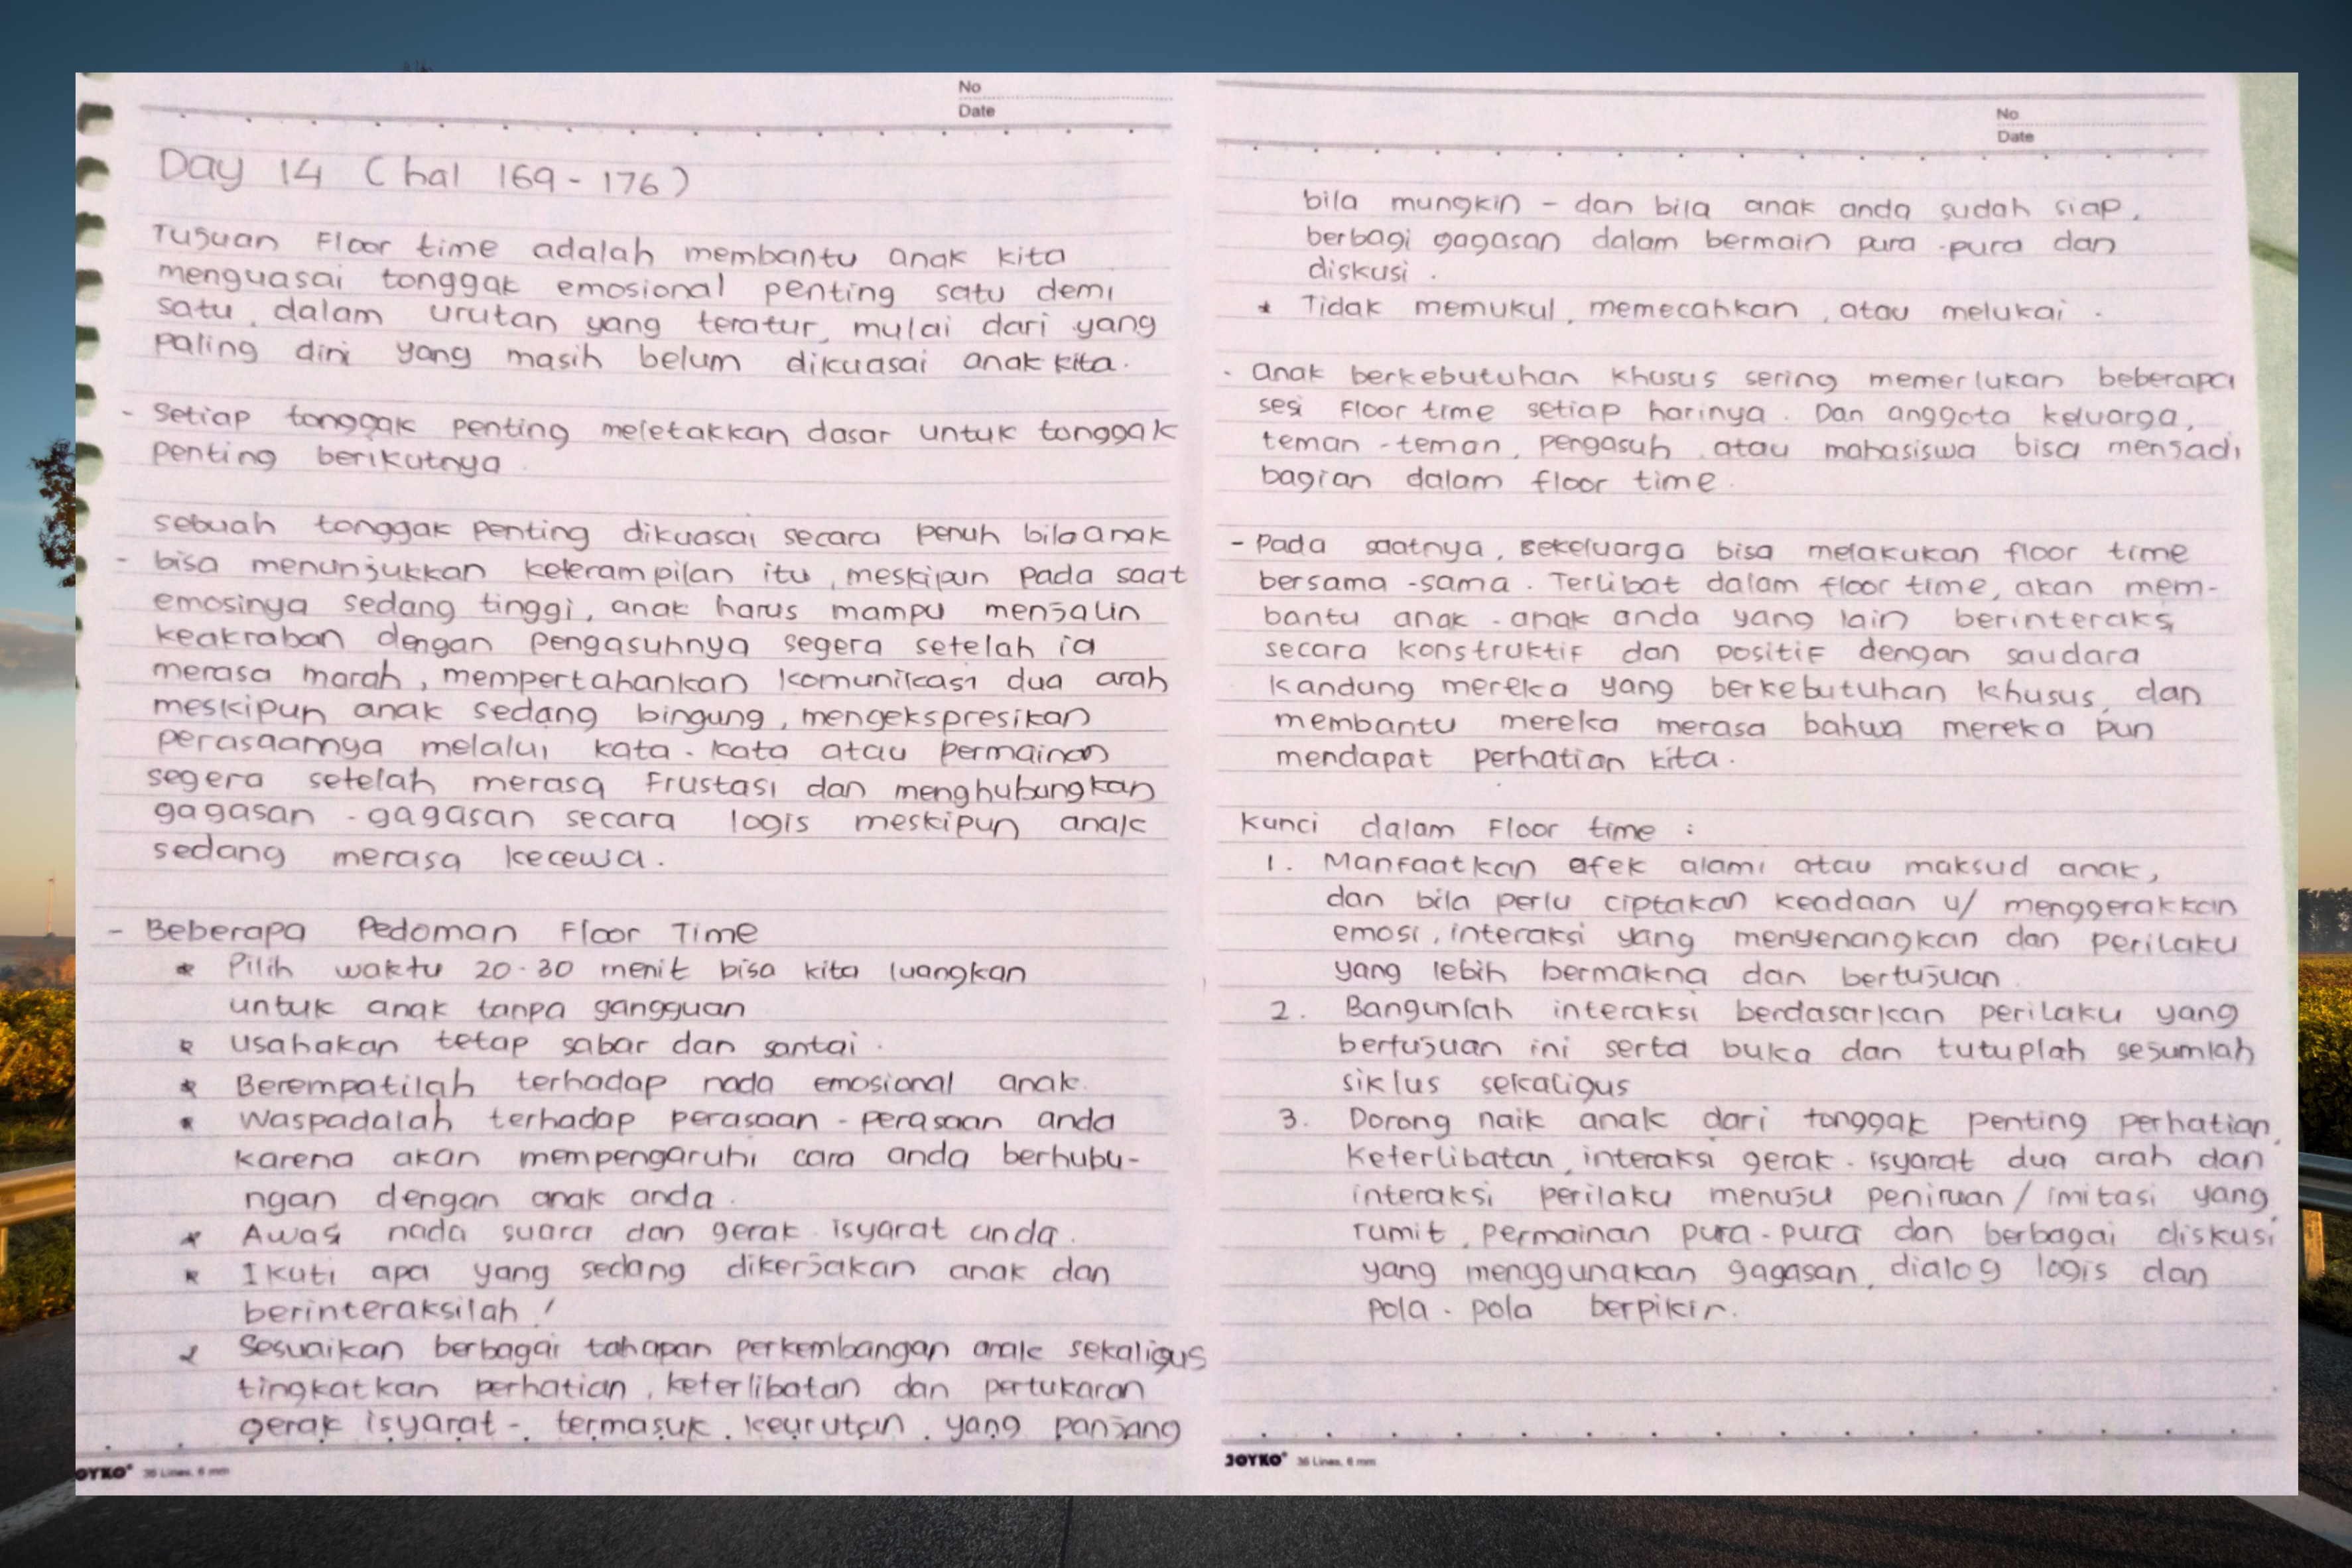 No
Date
Day 14 (hal 169 - 176)
Tujuan Floor time adalah membantu anak kita
menguasai tonggak emosional penting satu demi
satu, dalam urutan yang teratur, mulai dari yang
paling dini yang masih belum dikuasai anak kita.
- Setiap tonggak penting meletakkan dasar untuk tonggak
penting berikutnya.
sebuah tonggak penting dikuasai secara penuh bila anak
- bisa menunjukkan keterampilan itu, meskipun pada saat
emosinya sedang tinggi, anak harus mampu menjalin
keakraban dengan pengasuhnya segera setelah ia
merasa marah, mempertahankan komunikasi dua arah
meskipun anak sedang bingung, mengekspresikan
perasaannya melalui kata-kata atau permainan
segera setelah merasa frustasi dan menghubungkan
gagasan-gagasan secara logis meskipun anak
sedang merasa kecewa.
- Beberapa Pedoman Floor Time
* Pilih waktu 20-30 menit bisa kita luangkan
untuk anak tanpa gangguan
* usahakan tetap sabar dan santai.
* Berempatilah terhadap nada emosional anak.
* Waspadalah terhadap perasaan-perasaan anda
karena akan mempengaruhi cara anda berhubu-
ngan dengan anak anda.
* Awas nada suara dan gerak isyarat anda.
* Ikuti apa yang sedang dikerjakan anak dan
berinteraksilah!
* Sesuaikan berbagai tahapan perkembangan anak sekaligus
tingkatkan perhatian, keterlibatan dan pertukaran
gerak isyarat - termasuk keurutan yang panjang
OYKO 36 Lines, 6 mm
No
Date
bila mungkin - dan bila anak anda sudah siap,
berbagi gagasan dalam bermain pura-pura dan
diskusi.
* Tidak memukul, memecahkan, atau melukai.
- anak berkebutuhan khusus sering memerlukan beberapa
sesi Floor time setiap harinya. Dan anggota keluarga,
teman-teman, pengasuh, atau mahasiswa bisa menjadi
bagian dalam floor time.
- Pada saatnya, sekeluarga bisa melakukan floor time
bersama-sama. Terlibat dalam floor time, akan mem-
bantu anak-anak anda yang lain berinteraksi
secara konstruktif dan positif dengan saudara
kandung mereka yang berkebutuhan khusus, dan
membantu mereka merasa bahwa mereka pun
mendapat perhatian kita.
Kunci dalam Floor time :
1. Manfaatkan efek alami atau maksud anak,
dan bila perlu ciptakan keadaan u/ menggerakkan
emosi, interaksi yang menyenangkan dan perilaku
yang lebih bermakna dan bertujuan.
2. Bangunlah interaksi berdasarkan perilaku yang
bertujuan ini serta buka dan tutuplah sejumlah
siklus sekaligus
3. Dorong naik anak dari tonggak penting perhatian,
keterlibatan, interaksi gerak-isyarat dua arah dan
interaksi perilaku menuju peniruan/imitasi yang
rumit, permainan pura-pura dan berbagai diskusi
yang menggunakan gagasan, dialog logis dan
pola-pola berpikir.
JOYKO 36 Lines, 6 mm